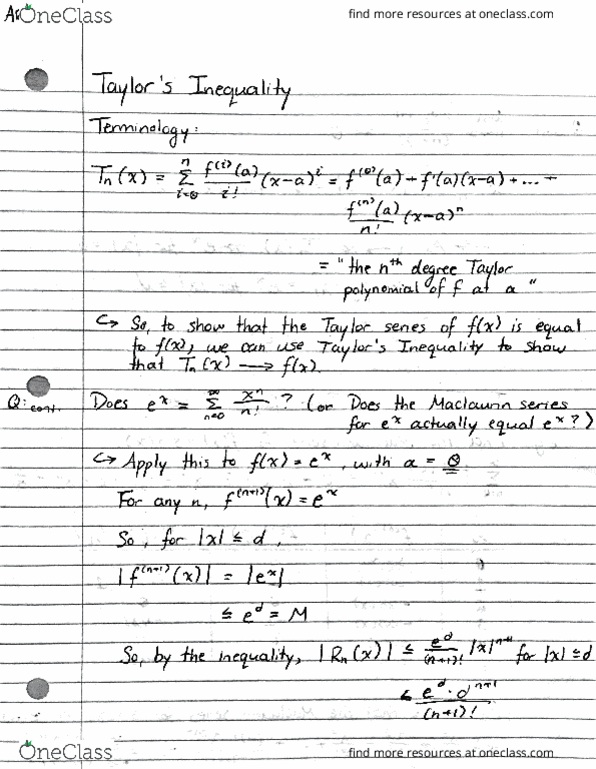 OneClass
find more resources at oneclass.com
Taylor's Inequality
Terminology:
Tₙ(x) = Σ_{i=0}^{n} f⁽ⁱ⁾(a)/i! (x-a)ⁱ = f⁽⁰⁾(a) + f'(a)(x-a) + ... +
f⁽ⁿ⁾(a)/n! (x-a)ⁿ
= "the nth degree Taylor
polynomial of f at a"
↳ So, to show that the Taylor series of f(x) is equal
to f(x), we can use Taylor's Inequality to show
that Tₙ(x) → f(x).
Q: cont. Does eˣ = Σ_{n=0}^{∞} xⁿ/n! ? (or Does the Maclaurin series
for eˣ actually equal eˣ?)
↳ Apply this to f(x) = eˣ, with a = 0
For any n, f⁽ⁿ⁺¹⁾(x) = eˣ
So, for |x| ≤ d,
|f⁽ⁿ⁺¹⁾(x)| = |eˣ|
≤ eᵈ = M
So, by the inequality, |Rₙ(x)| ≤ eᵈ/(n+1)! |x|ⁿ⁺¹ for |x| ≤ d
≤ eᵈ · dⁿ⁺¹/(n+1)!
OneClass
find more resources at oneclass.com